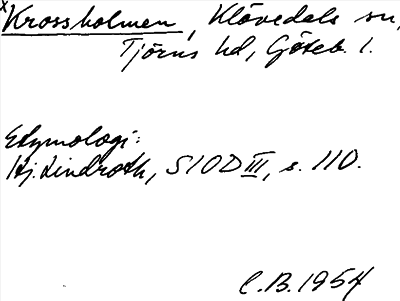 x Krossholmen, Klövedals sn,
Tjörns hd, Göteb. l.
Etymologi:
Hj. Lindroth, SIOD III, s. 110.
C.B. 1954